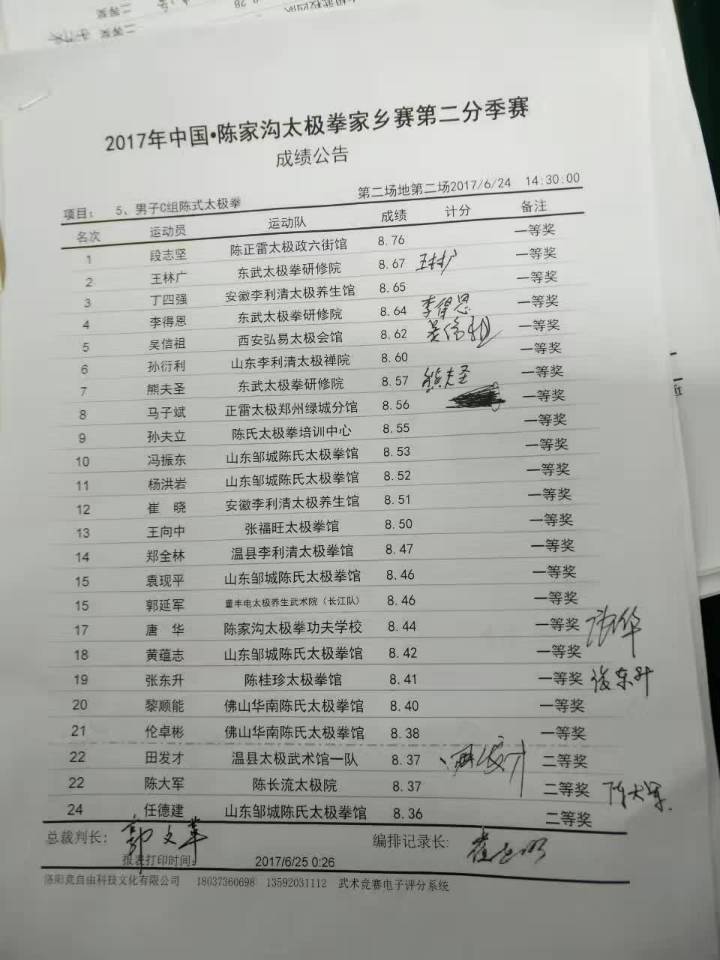 2017年中国•陈家沟太极拳家乡赛第二分季赛
成绩公告
项目： 5、男子C组陈式太极拳 第二场地第二场2017/6/24 14:30:00
名次 运动员 运动队 成绩 计分 备注
1 段志坚 陈正雷太极政六街馆 8.76 一等奖
2 王林广 东武太极拳研修院 8.67 王林广 一等奖
3 丁四强 安徽李利清太极养生馆 8.65 一等奖
4 李得恩 东武太极拳研修院 8.64 李得恩 一等奖
5 吴信祖 西安弘易太极会馆 8.62 吴信祖 一等奖
6 孙衍利 山东李利清太极禅院 8.60 一等奖
7 熊夫圣 东武太极拳研修院 8.57 熊夫圣 一等奖
8 马子斌 正雷太极郑州绿城分馆 8.56 一等奖
9 孙夫立 陈氏太极拳培训中心 8.55 一等奖
10 冯振东 山东邹城陈氏太极拳馆 8.53 一等奖
11 杨洪岩 山东邹城陈氏太极拳馆 8.52 一等奖
12 崔 晓 安徽李利清太极养生馆 8.51 一等奖
13 王向中 张福旺太极拳馆 8.50 一等奖
14 郑全林 温县李利清太极拳馆 8.47 一等奖
15 袁现平 山东邹城陈氏太极拳馆 8.46 一等奖
15 郭延军 丰电太极养生武术院（长江队） 8.46 一等奖
17 唐 华 陈家沟太极拳功夫学校 8.44 一等奖 唐华
18 黄蕴志 山东邹城陈氏太极拳馆 8.42 一等奖
19 张东升 陈桂珍太极拳馆 8.41 一等奖 张东升
20 黎顺能 佛山华南陈氏太极拳馆 8.40 一等奖
21 伦卓彬 佛山华南陈氏太极拳馆 8.38 一等奖
22 田发才 温县太极武术馆一队 8.37 田发才 二等奖
22 陈大军 陈长流太极院 8.37 二等奖 陈大军
24 任德建 山东邹城陈氏太极拳馆 8.36 二等奖
总裁判长： 郭文革 编排记录长：
报表打印时间： 2017/6/25 0:26
洛阳竞自由科技文化有限公司 18037360698 13592031112 武术竞赛电子评分系统